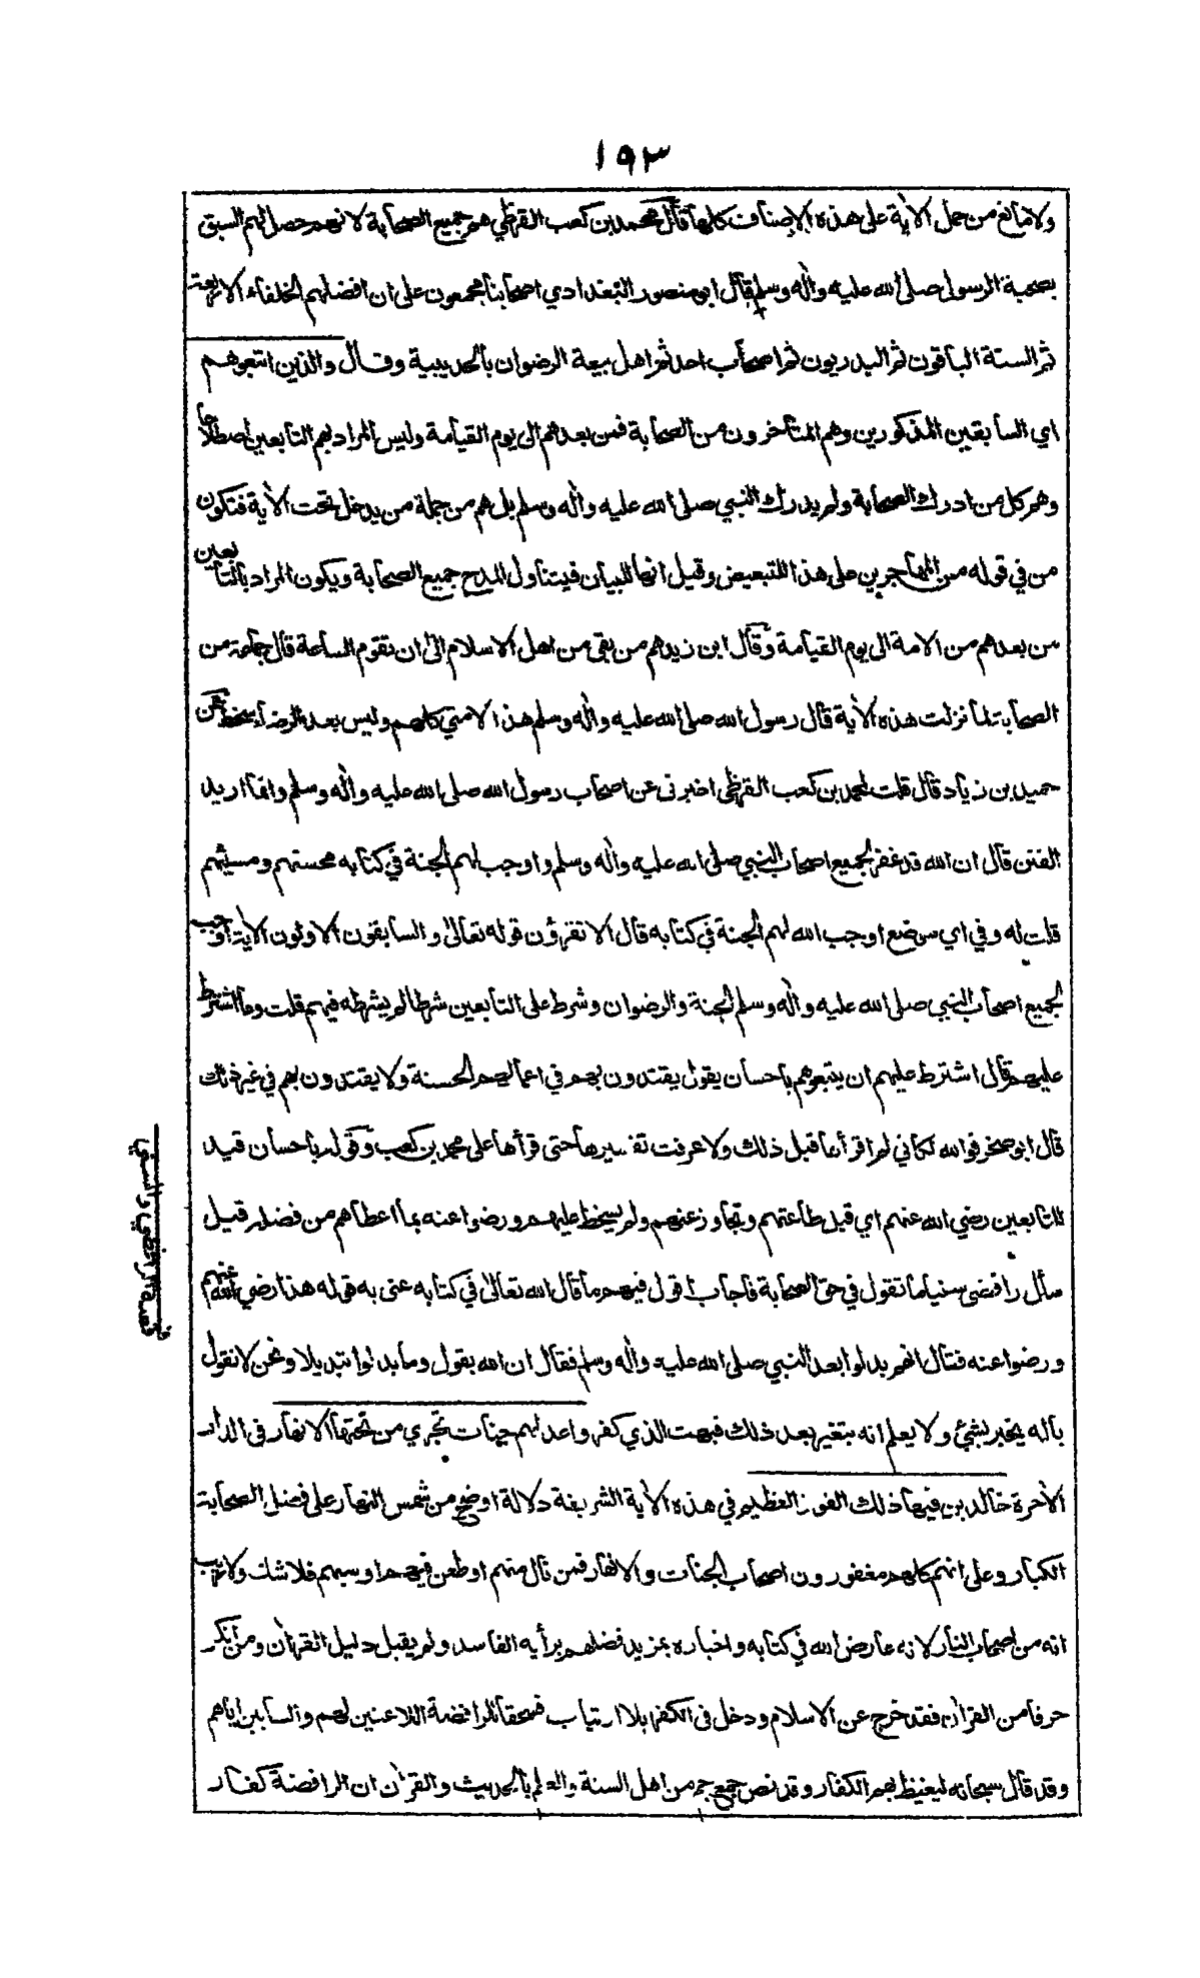 ١٩٣
ولا مانع من حمل الاية على هذه الاصناف كلها قال محمد بن كعب القرظي هم جميع الصحابة لانهم حصل لهم السبق
بصحبة الرسول صلى الله عليه واله وسلم قال ابو منصور البغدادي اصحابنا مجمعون على ان افضلهم الخلفاء الاربعة
ثم الستة الباقون ثم البدريون ثم اصحاب احد ثم اهل بيعة الرضوان بالحديبية وقال والذين اتبعوهم
اي السابقين المذكورين وهم المتأخرون من الصحابة فمن بعدهم الى يوم القيامة وليس المراد بهم التابعين اصطلاحا
وهم كل من ادرك الصحابة ولم يدرك النبي صلى الله عليه واله وسلم بل هم من جملة من يدخل تحت الاية فتكون
من في قوله من المهاجرين على هذا للتبعيض وقيل انها للبيان فيتناول المدح جميع الصحابة ويكون المراد بالتابعين
من بعدهم من الامة الى يوم القيامة وقال ابن زيد هم من بقي من اهل الاسلام الى ان تقوم الساعة قال جماعة من
الصحابة لما نزلت هذه الاية قال رسول الله صلى الله عليه واله وسلم هذا لامتي كلهم وليس بعد الرضاء سخط عن
حميد بن زياد قال قلت لمحمد بن كعب القرظي اخبرني عن اصحاب رسول الله صلى الله عليه واله وسلم وانما اريد
الفتن قال ان الله قد غفر لجميع اصحاب النبي صلى الله عليه واله وسلم واوجب لهم الجنة في كتابه محسنهم ومسيئهم
قلت له وفي اي موضع اوجب الله لهم الجنة في كتابه قال الا تقرؤن قوله تعالى والسابقون الاولون الاية اوجب
لجميع اصحاب النبي صلى الله عليه واله وسلم الجنة والرضوان وشرط على التابعين شرطا لم يشرطه فيهم قلت وما اشترط
عليهم قال اشترط عليهم ان يتبعوهم باحسان يقول يقتدون بهم في اعمالهم الحسنة ولا يقتدون بهم في غير ذلك
قال ابو صخر فوالله لكاني لم اقرأها قبل ذلك ولا عرفت تفسيرها حتى قرأها على محمد بن كعب وقوله باحسان قيد
للتابعين رضي الله عنهم اي قبل طاعتهم وتجاوز عنهم ولم يسخط عليهم ورضوا عنه بما اعطاهم من فضله قيل
سأل رافضى سنيا ما تقول في حق الصحابة فاجاب اقول فيهم ما قال الله تعالى في كتابه عنى به قوله هذا رضي الله عنهم
ورضوا عنه فقال انهم بدلوا بعد النبي صلى الله عليه واله وسلم فقال ان الله يقول وما بدلوا تبديلا ونحن لا نقول
باله يخبر بشيء ولا يعلم انه يتغير بعد ذلك فبهت الذي كفر واعد لهم جنات تجري من تحتها الانهار فى الدار
الآخرة خالدين فيها ذلك الفوز العظيم في هذه الآية الشريفة دلالة اوضح من شمس النهار على فضل الصحابة
الكبار وعلى انهم كلهم مغفورون اصحاب الجنات والانهار فمن نال منهم او طعن فيهم او سبهم فلا شك ولا ريب
انه من اصحاب النار لانه عارض الله في كتابه واخباره بمزيد فضلهم برأيه الفاسد ولم يقبل دليل القرآن ومن انكر
حرفا من القرآن فقد خرج عن الاسلام ودخل فى الكفر بلا ارتياب فسحقا للرافضة اللاعنين لهم والسابين اياهم
وقد قال سبحانه ليغيظ بهم الكفار وقد نص جمع جم من اهل السنة والعلم بالحديث والقرآن ان الرافضة كفار
قصة الرافضي والسني